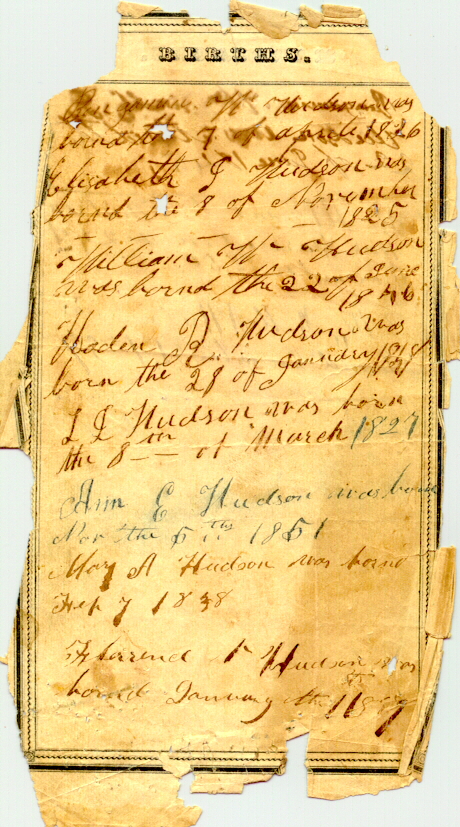 BIRTHS.
W Hudson was
bornd the 7 of aprile 1826
Elisabeth J Hudson was
bornd the 8 of November
1825
William W Hudson
was bornd the 22 of June
Haden B Hudson was
born the 28 of January
L L Hudson was born
the 8 th of March 1827
Ann E Hudson was born
Nov the 5 th 1851
Mary A Hudson was bornd
Feb 7 1838
Hudson was
bornd January the